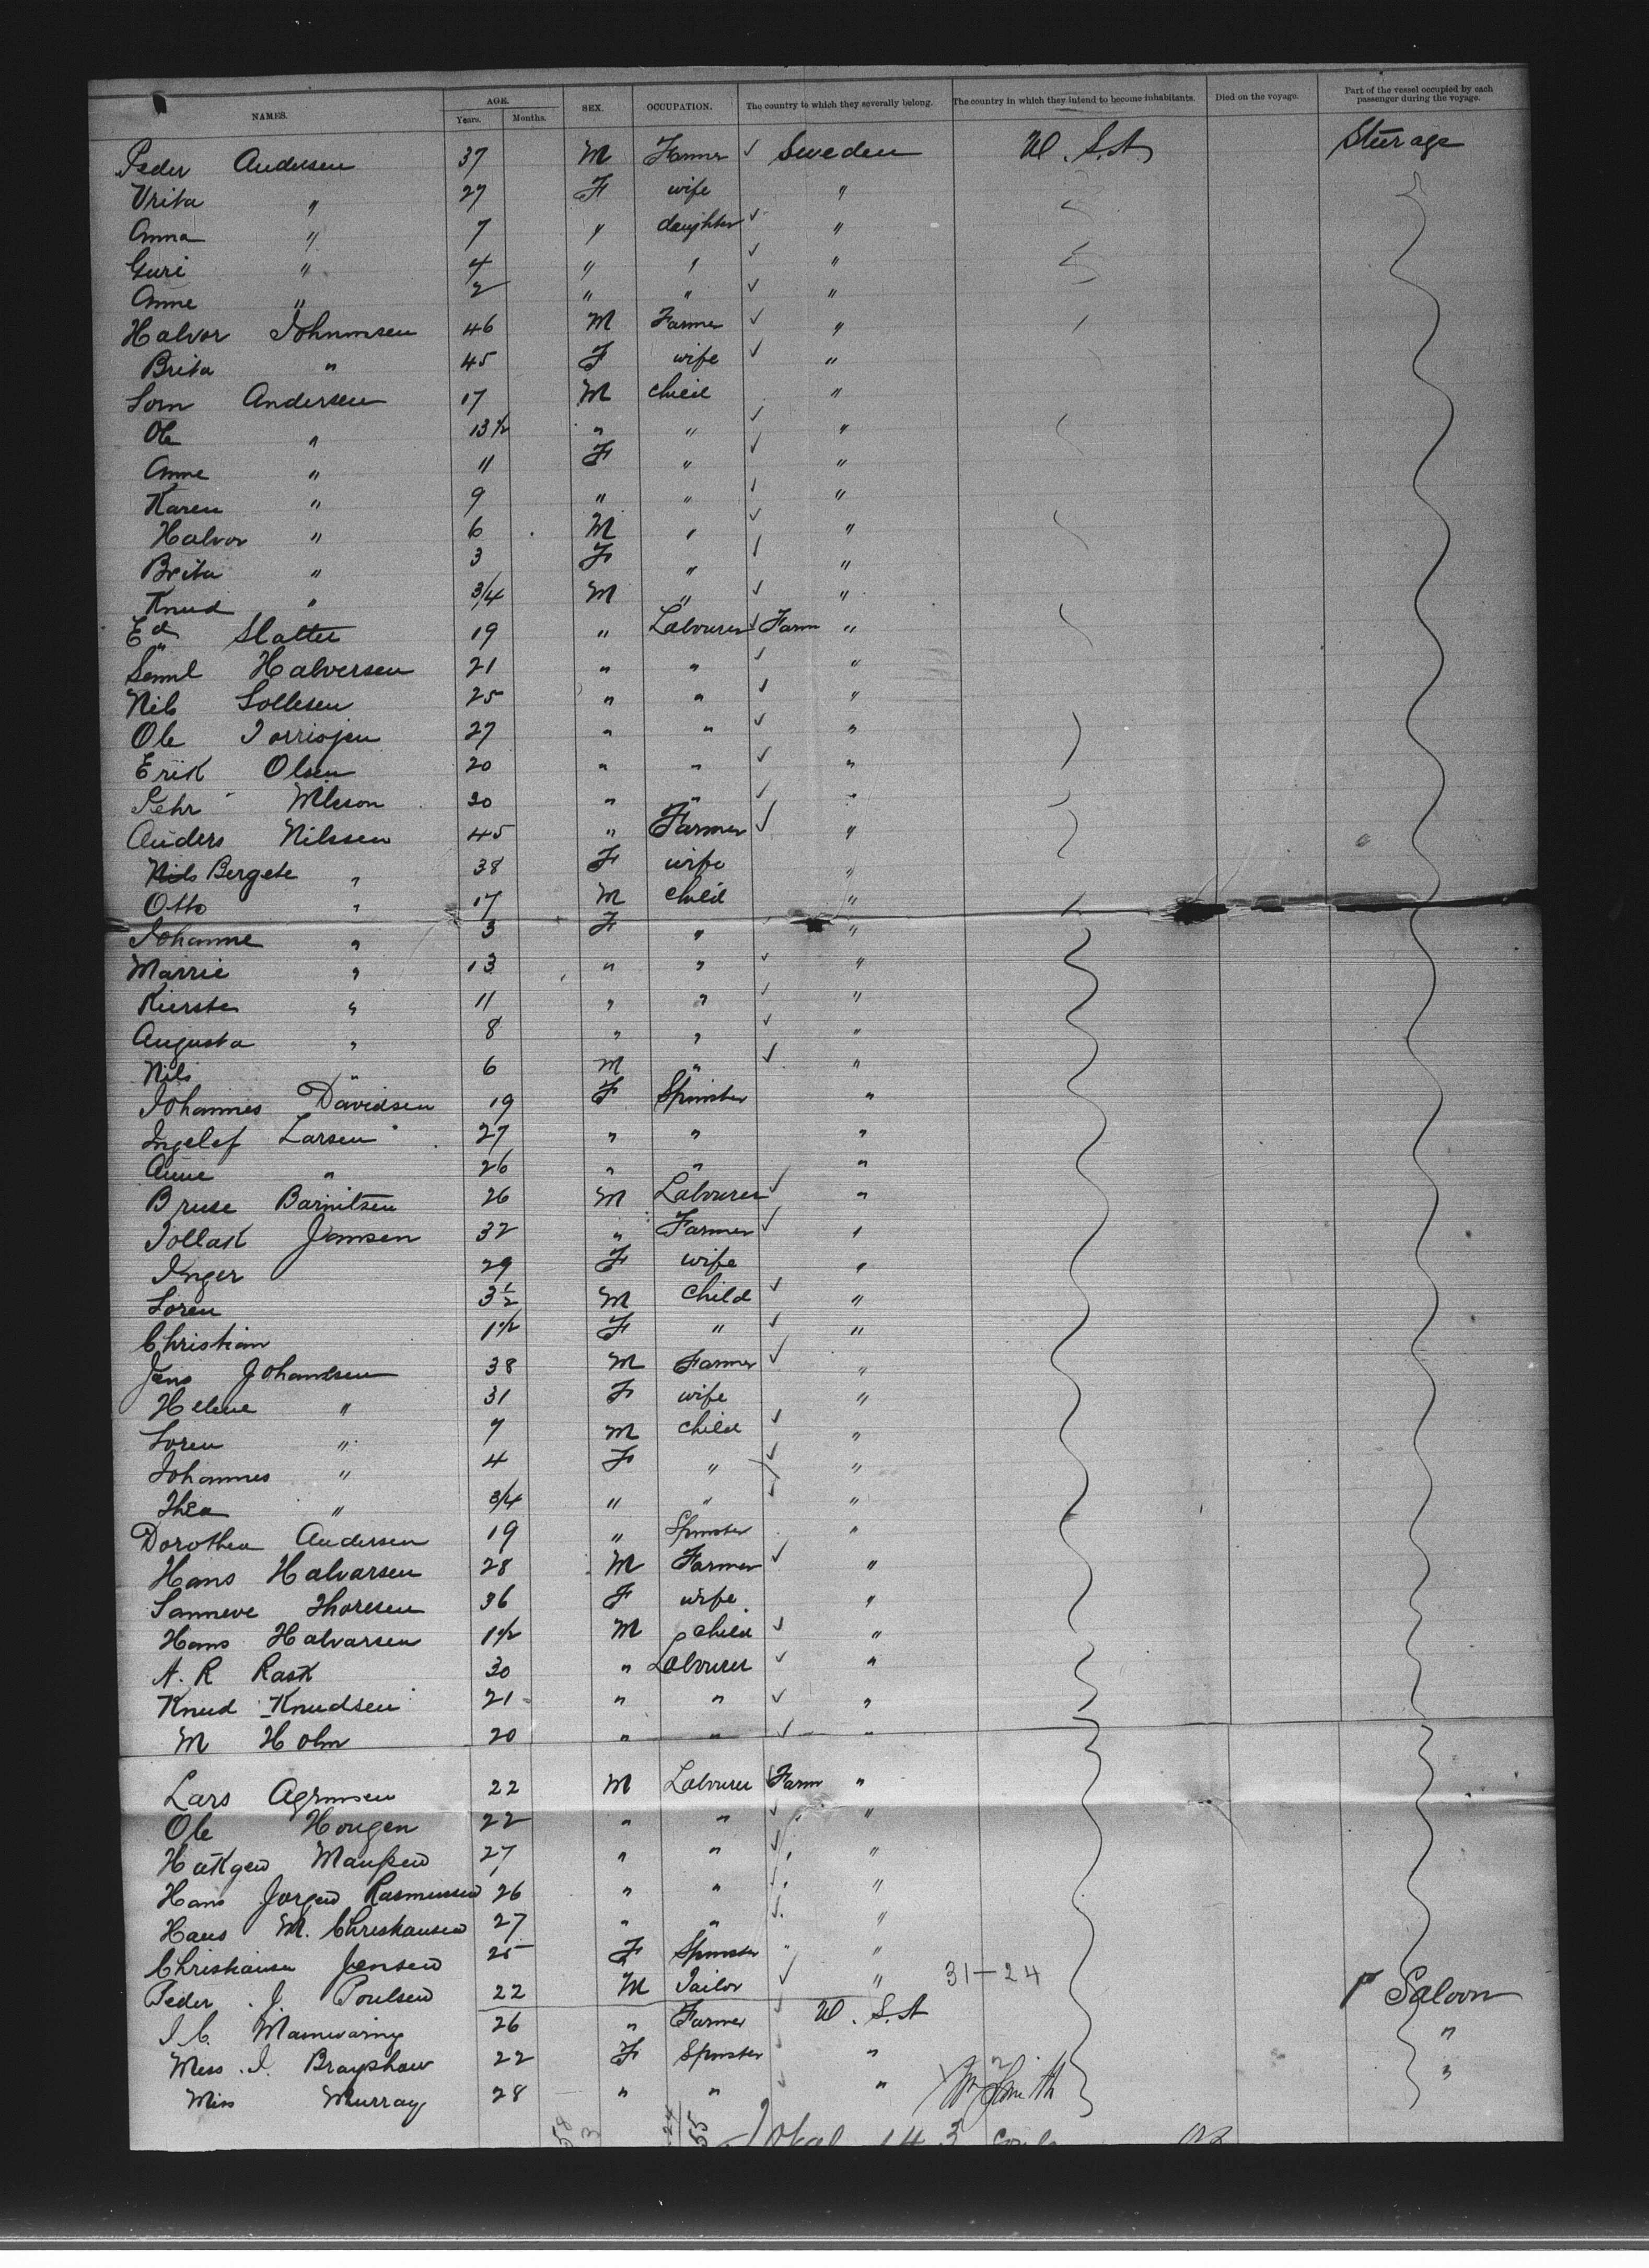 NAMES. AGE. SEX. OCCUPATION. The country to which they severally belong. The country in which they intend to become inhabitants. Died on the voyage. Part of the vessel occupied by each passenger during the voyage.
Years. Months.
Peder Andersen 37 M Farmer ✓ Sweden U.S.A Steerage
Brita " 27 F wife "
Anna " 7 " daughter ✓ "
Guri " 4 " " ✓ "
Anne " 2 " " ✓ "
Halvor Johnnsen 46 M Farmer ✓ "
Brita " 45 F wife ✓ "
Sorn Andersen 17 M child "
Ole " 13 1/2 " " ✓ "
Anne " 11 F " ✓ "
Karen " 9 " " ✓ "
Halvor " 6 M " ✓ "
Brita " 3 F " ✓ "
Knud " 3/4 M " ✓ "
Ed Slatte 19 " Labourer ✓ Farm "
Halversen 21 " " ✓ "
Nils Sollesen 25 " " ✓ "
Ole 27 " " ✓ "
Erik Olsen 20 " " ✓ "
Pehr Nilsson 20 " " ✓ "
Anders Nilssen 45 " Farmer ✓ "
Bergete " 38 F wife "
Otto " 17 M child "
Johanne " 3 F " "
Marrie " 13 " " ✓ "
Kierste " 11 " " ✓ "
Augusta " 8 " " ✓ "
Nils " 6 M " ✓ "
Johannes Davidsen 19 F Spinster "
Ingelef Larsen 27 " " "
Anne " 26 " " "
Bruse Barnitsen 26 M Labourer ✓ "
Tollak Jansen 32 " Farmer ✓ "
Inger 29 F wife "
Soren 3 1/2 M Child ✓ "
Christian 1 1/2 F " ✓ "
Jens Johansen 38 M Farmer ✓ "
Helene " 31 F wife "
Soren " 7 M child ✓ "
Johannes " 4 F " ✓ "
Thea " 3/4 " " ✓ "
Dorothea Andersen 19 " Spinster "
Hans Halvarsen 28 M Farmer ✓ "
Sanneve Thoresen 36 F wife "
Hans Halvarsen 1 1/2 M child ✓ "
A. R Rask 30 " Labourer ✓ "
Knud Knudsen 21 " " ✓ "
M Holm 20 " " ✓ "
Lars 22 M Labourer ✓ Farm "
Ole Hougen 22 " " ✓ "
27 " " ✓ "
Hans Jorgen Rasmussen 26 " " ✓ "
Hans M. Christiansen 27 " " ✓ "
Christiansen Jensen 25 F Spinster "
Peder J. Poulsen 22 M Tailor ✓ " 31-24 Saloon
J. C. Mainwaring 26 " Farmer ✓ U.S.A "
Miss J. Brayshaw 22 F Spinster "  "
Miss Murray 28 " " ✓ " Smith
58 3 24 55 Total 143 souls